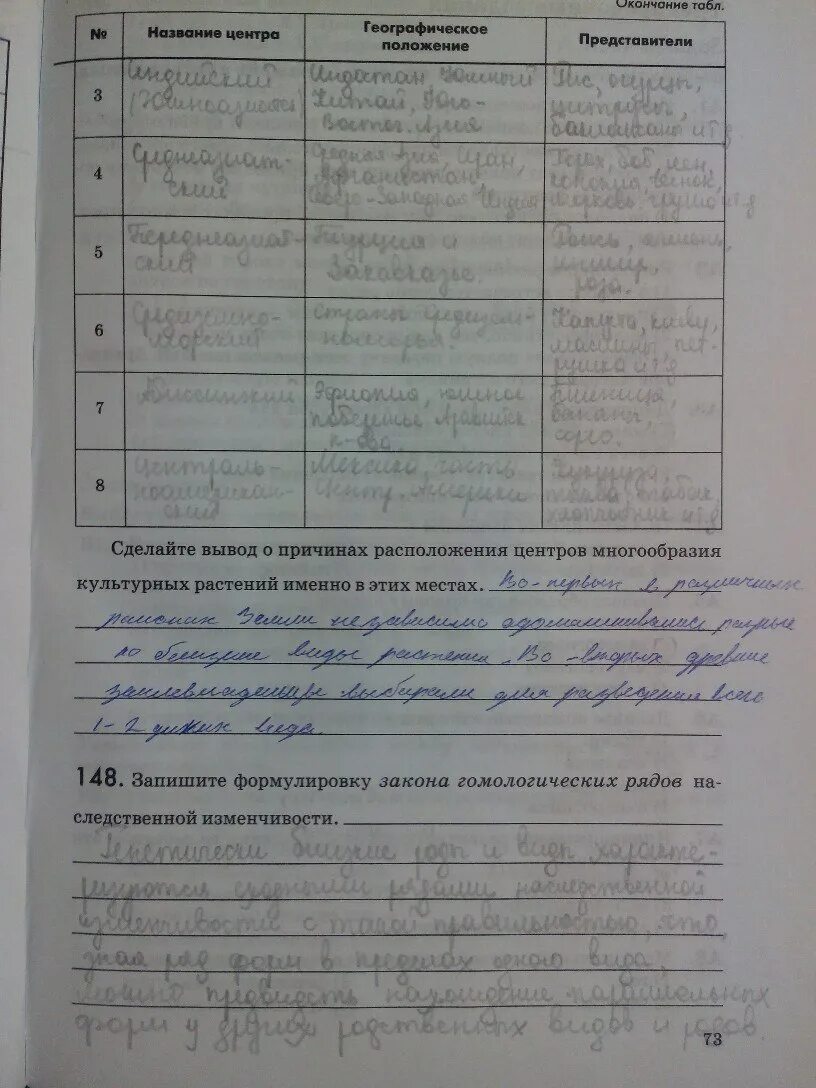 Окончание табл.
№ Название центра Географическое положение Представители
3 Индийский Индостан, Южный Рис, огурцы,
Китай, Юго- цитрусы,
Восточ. Азия баклажаны и т д
4 Среднеазиат- Средняя Азия, Иран, Горох, боб, лен,
ский Афганистан, конопля, чеснок,
Северо-Западная Индия морковь, груша и т д
5 Переднеазиат- Турция и Рожь, ячмень,
ский Закавказье. инжир,
роза.
6 Средиземно- Страны Средизем- Капуста,
морский номорья. маслины, пет-
рушка и т д
7 Абиссинский Эфиопия, южное Пшеница,
побережье Аравийск. бананы,
п-ова. сорго.
8 Централь- Мексика, часть Кукуруза,
ноамерикан- Центр. Америки табак,
ский хлопчатник и т д
Сделайте вывод о причинах расположения центров многообразия
культурных растений именно в этих местах. Во-первых в различных
районах Земли независимо одомашнивались разные
по виды растений. Во-вторых древние
земледельцы выбирали для разведения всего
1-2 диких вида.
148. Запишите формулировку закона гомологических рядов на-
следственной изменчивости.
Генетически близкие роды и виды характе-
ризуются сходными рядами наследственной
изменчивости с такой правильностью, что,
зная ряд форм в пределах одного вида,
можно предвидеть нахождение параллельных
форм у других родственных видов и родов
73